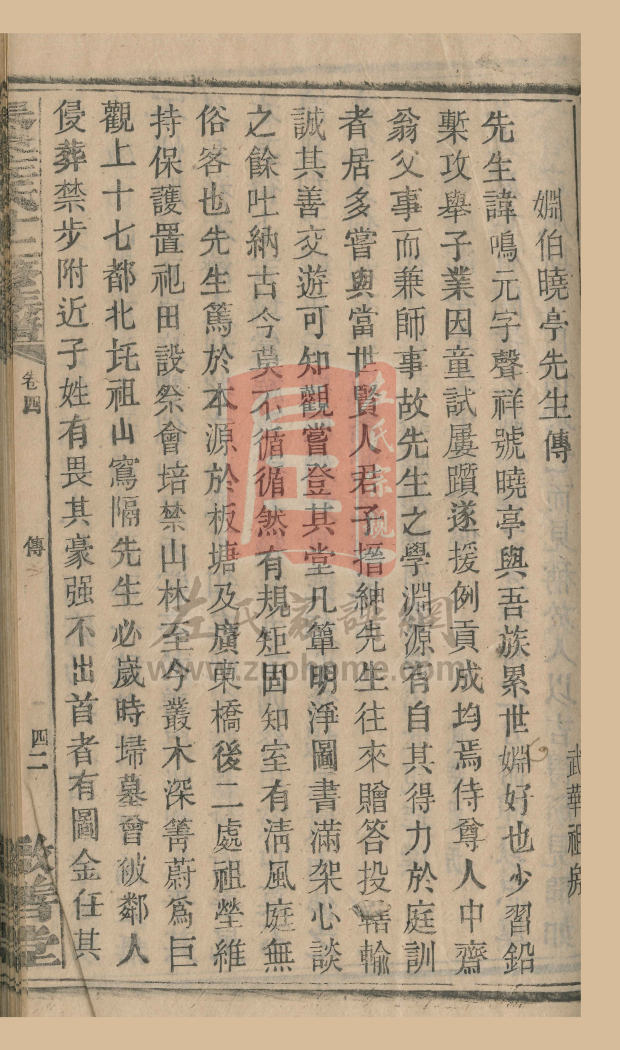 姻伯曉亭先生傳
先生諱鳴元字聲祥號曉亭與吾族累世姻好也少習鉛
槧攻舉子業因童試屢躓遂援例貢成均焉侍尊人中齋
翁父事而兼師事故先生之學淵源有自其得力於庭訓
者居多嘗與當世賢人君子搢紳先生往來贈答投轄輸
誠其善交遊可知觀嘗登其堂凡簞明淨圖書滿架心談
之餘吐納古今莫不循循然有規矩固知室有清風庭無
俗客也先生篤於本源於板塘及廣東橋後二處祖塋維
持保護置祀田設祭會培禁山林至今叢木深篝蔚爲巨
觀上十七都北托祖山寫隔先生必歲時掃墓曾彼鄰人
侵葬禁步附近子姓有畏其豪强不出首者有圖金任其
卷四
傳
四二
啟善堂
武華祖房
左氏宗親
左氏家譜網
www.zuohome.com